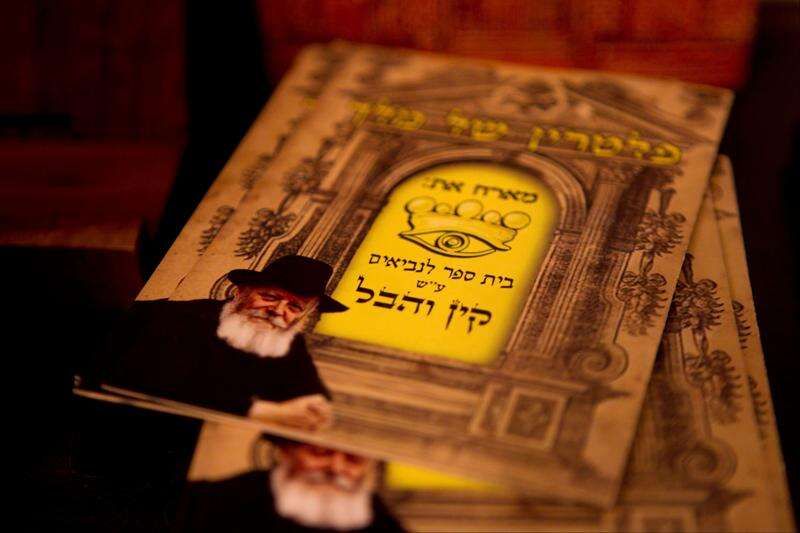 פלטרין של מלך
מארח את:
בית ספר לנביאים
ע״ש
קין והבל